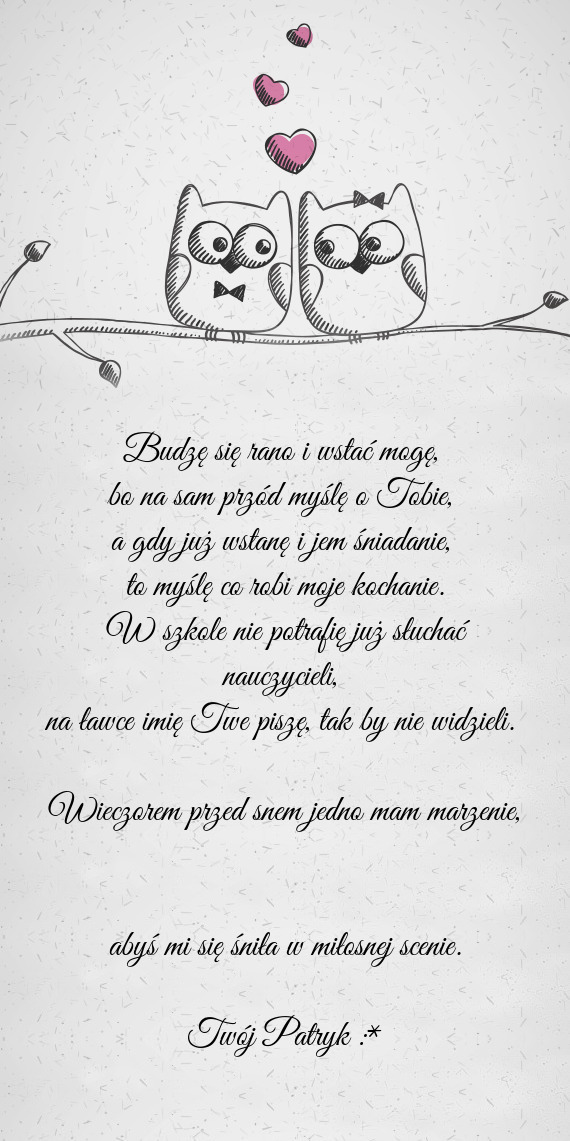 Budzę się rano i wstać mogę,
bo na sam przód myślę o Tobie,
a gdy już wstanę i jem śniadanie,
to myślę co robi moje kochanie.
W szkole nie potrafię już słuchać
nauczycieli,
na ławce imię Twe piszę, tak by nie widzieli.
Wieczorem przed snem jedno mam marzenie,
abyś mi się śniła w miłosnej scenie.
Twój Patryk :*